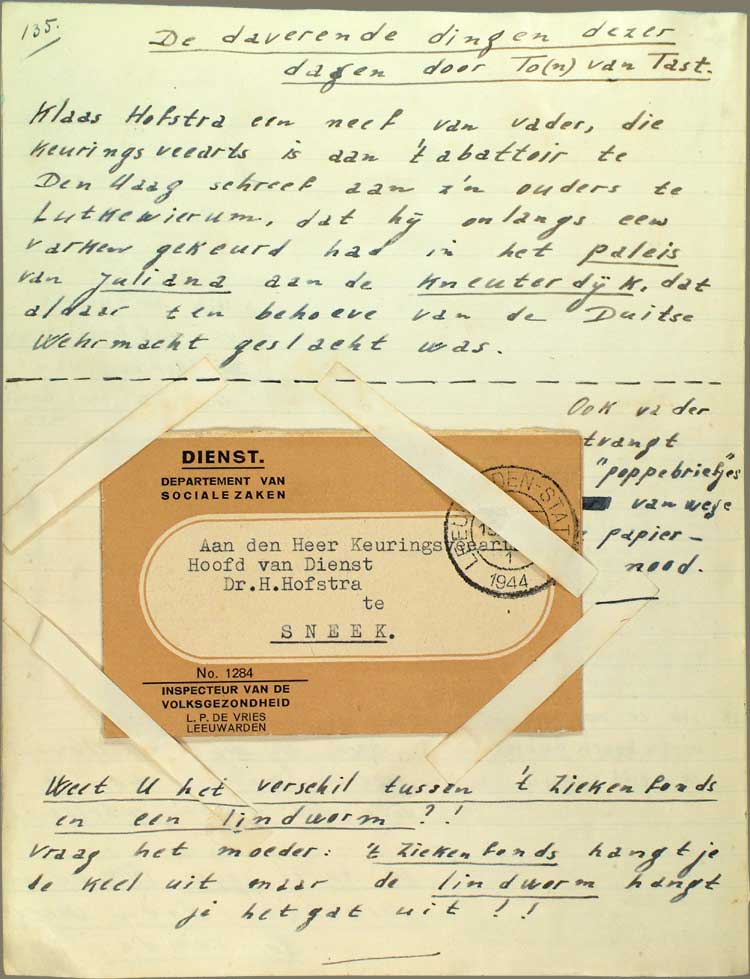 135.
De daverende dingen dezer
dagen door To(n) van Tast.
Klaas Hofstra een neef van vader, die
keuringsveearts is aan 't abattoir te
Den Haag schreef aan z'n ouders te
Lutkewierum, dat hij onlangs een
varken gekeurd had in het paleis
van Juliana aan de Kneuterdijk, dat
aldaar ten behoeve van de Duitse
Wehrmacht geslacht was.
Ook vader
tvangt
"poppebriefjes"
van wege
papier-
nood.
DIENST.
DEPARTEMENT VAN
SOCIALE ZAKEN
LEEU DEN-STAT
1
1944
Aan den Heer Keuringsveeart
Hoofd van Dienst
Dr.H.Hofstra
te
SNEEK.
No. 1284
INSPECTEUR VAN DE
VOLKSGEZONDHEID
L. P. DE VRIES
LEEUWARDEN
Weet U het verschil tussen 't Ziekenfonds
en een lindworm ?!
Vraag het moeder: 't Ziekenfonds hangt je
de keel uit maar de lindworm hangt
je het gat uit !!